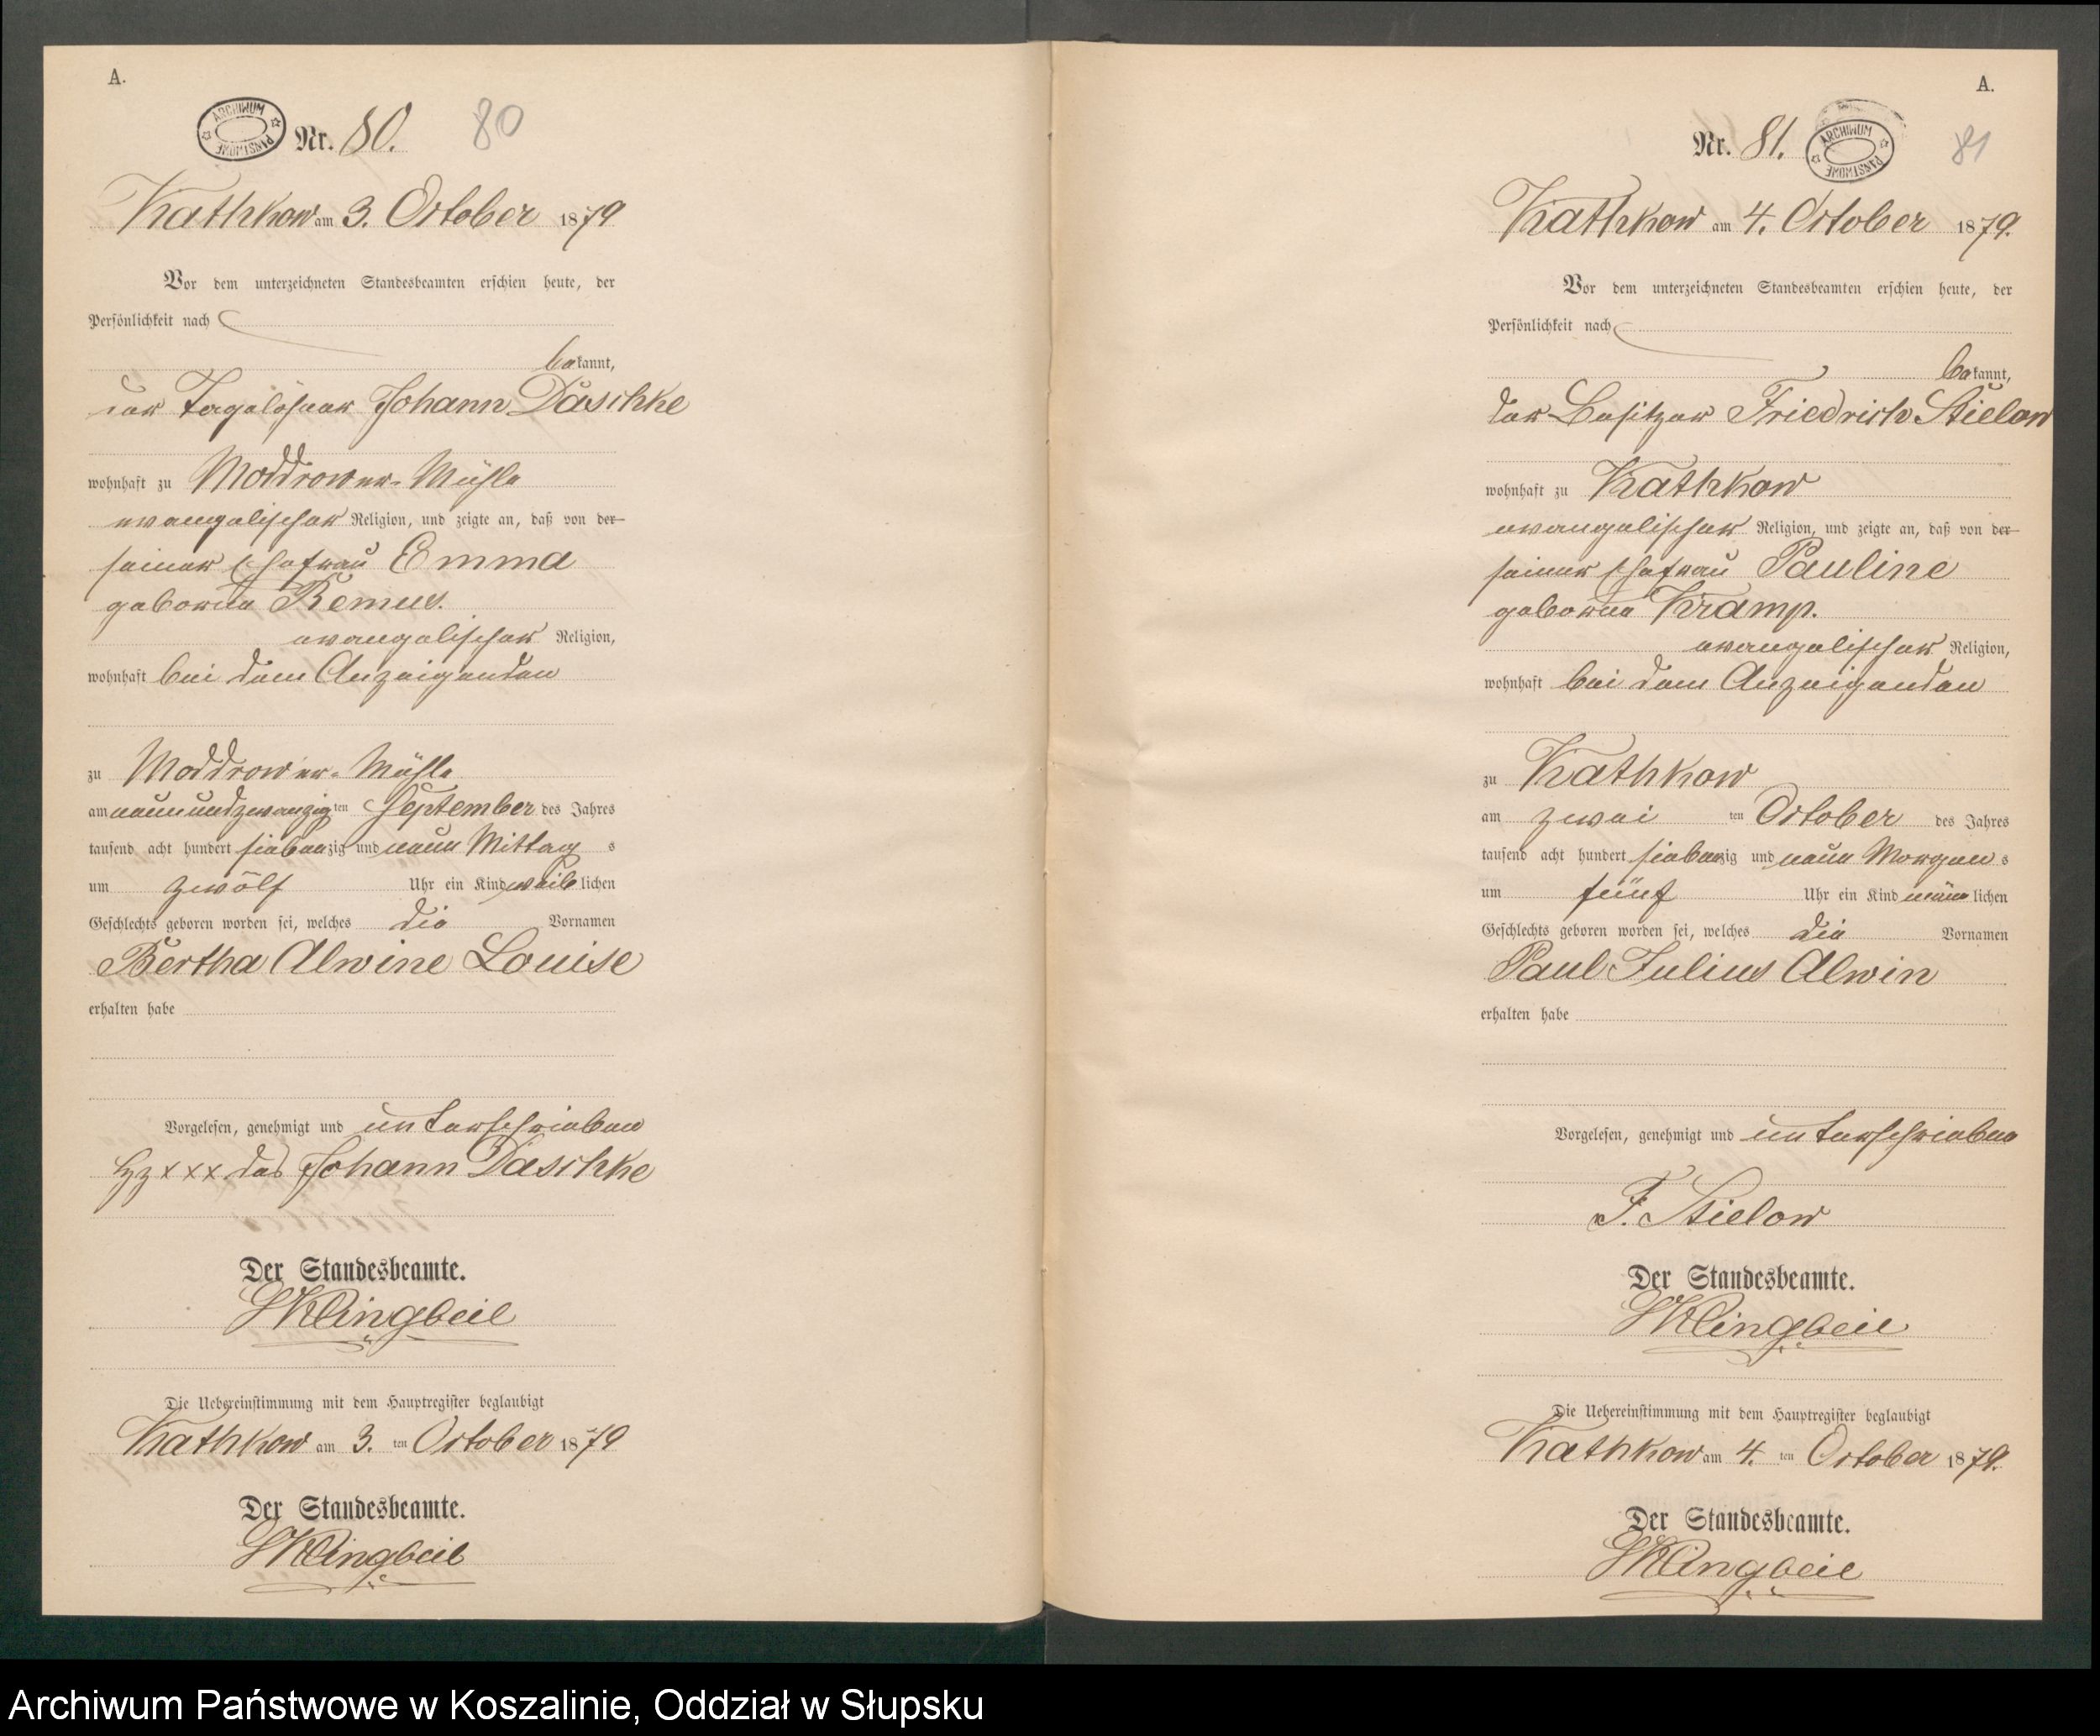 A.
ARCHIWUM PAŃSTWOWE
Nr. 80.
80
Kathkow am 3. October 1879
Vor dem unterzeichneten Standesbeamten erschien heute, der
Persönlichkeit nach
bekannt,
der Tagelöhner Johann Däschke
wohnhaft zu Moddrower-Mühle
evangelischer Religion, und zeigte an, daß von der
seiner Ehefrau Emma
geborne Remus.
evangelischer Religion,
wohnhaft bei dem Anzeigenden
zu Moddrower-Mühle
am neunundzwanzigten September des Jahres
tausend acht hundert siebenzig und neun Mittag s
um zwölf Uhr ein Kind weiblichen
Geschlechts geboren worden sei, welches die Vornamen
Bertha Alwine Louise
erhalten habe
Vorgelesen, genehmigt und unterschrieben
Hz xxx des Johann Däschke
Der Standesbeamte.
Klingbeil
Die Uebereinstimmung mit dem Hauptregister beglaubigt
Kathkow am 3. ten October 1879
Der Standesbeamte.
Klingbeil
A.
Nr. 81.
ARCHIWUM PAŃSTWOWE
81
Kathkow am 4. October 1879.
Vor dem unterzeichneten Standesbeamten erschien heute, der
Persönlichkeit nach
bekannt,
der Besitzer Friedrich Stielow
wohnhaft zu Kathkow
evangelischer Religion, und zeigte an, daß von der
seiner Ehefrau Pauline
geborne Kramp.
evangelischer Religion,
wohnhaft bei dem Anzeigenden
zu Kathkow
am zwei ten October des Jahres
tausend acht hundert siebenzig und neun Morgen s
um fünf Uhr ein Kind männlichen
Geschlechts geboren worden sei, welches die Vornamen
Paul Julius Alwin
erhalten habe
Vorgelesen, genehmigt und unterschrieben
F. Stielow
Der Standesbeamte.
Klingbeil
Die Uebereinstimmung mit dem Hauptregister beglaubigt
Kathkow am 4. ten October 1879.
Der Standesbeamte.
Klingbeil
Archiwum Państwowe w Koszalinie, Oddział w Słupsku